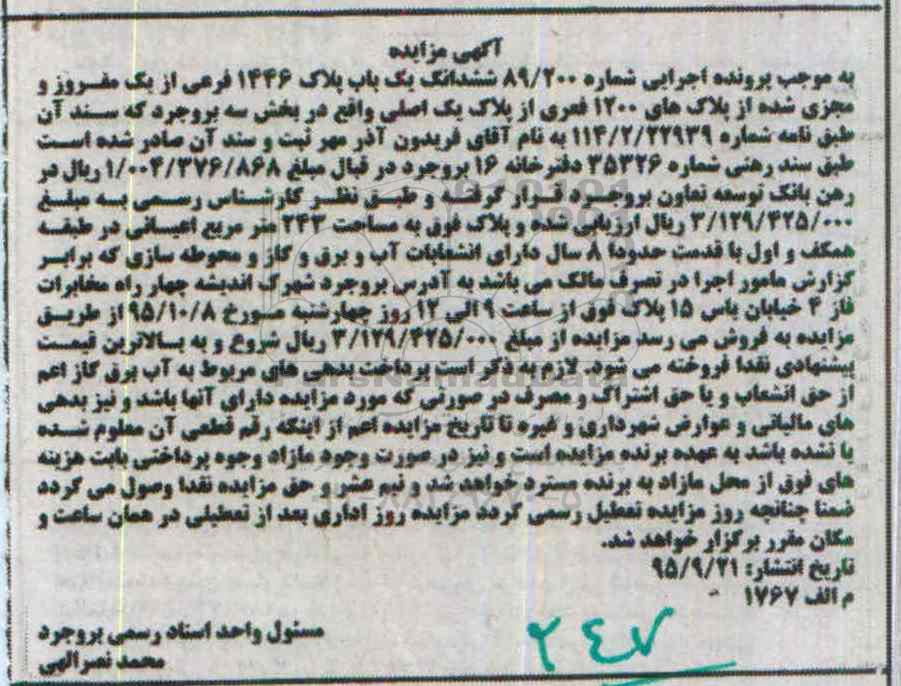 آگهی مزایده
به موجب پرونده اجرایی شماره ۸۹/۲۰۰ ششدانگ یک باب پلاک ۱۴۴۶ فرعی از یک مفروز و
مجزی شده از پلاک های ۱۲۰۰ فعری از پلاک یک اصلی واقع در بخش سه بروجرد که سند آن
طبق نامه شماره ۱۱۴/۲/۲۲۹۳۹ به نام آقای فریدون آذر مهر ثبت و سند آن صادر شده است
طبق سند رهنی شماره ۳۵۳۲۶ دفتر خانه ۱۶ بروجرد در قبال مبلغ ۱/۰۰۴/۳۷۶/۸۶۸ ریال در
رهن بانک توسعه تعاون بروجرد قرار گرفته و طبق نظر کارشناس رسمی به مبلغ
۳/۱۲۹/۴۲۵/۰۰۰ ریال ارزیابی شده و پلاک فوق به مساحت ۲۴۳ متر مربع اعیانی در طبقه
همکف و اول با قدمت حدودا ۸ سال دارای انشعابات آب و برق و گاز و محوطه سازی که برابر
گزارش مامور اجرا در تصرف مالک می باشد به آدرس بروجرد شهرک اندیشه چهار راه مخابرات
فاز ۴ خیابان یاس ۱۵ پلاک فوق از ساعت ۹ الی ۱۲ روز چهارشنبه مورخ ۹۵/۱۰/۸ از طریق
مزایده به فروش می رسد مزایده از مبلغ ۳/۱۲۹/۴۲۵/۰۰۰ ریال شروع و به بالاترین قیمت
پیشنهادی نقدا فروخته می شود. لازم به ذکر است پرداخت بدهی های مربوط به آب برق گاز اعم
از حق انشعاب و یا حق اشتراک و مصرف در صورتی که مورد مزایده دارای آنها باشد و نیز بدهی
های مالیاتی و عوارض شهرداری و غیره تا تاریخ مزایده اعم از اینکه رقم قطعی آن معلوم شده
یا نشده باشد به عهده برنده مزایده است و نیز در صورت وجود مازاد وجوه پرداختی بابت هزینه
های فوق از محل مازاد به برنده مسترد خواهد شد و نیم عشر و حق مزایده نقدا وصول می گردد
ضمنا چنانچه روز مزایده تعطیل رسمی گردد مزایده روز اداری بعد از تعطیلی در همان ساعت و
مکان مقرر برگزار خواهد شد.
تاریخ انتشار: ۹۵/۹/۲۱
م الف ۱۷۶۷
مسئول واحد اسناد رسمی بروجرد
محمد نصرالهی
۲۴۷
ParsNamadData